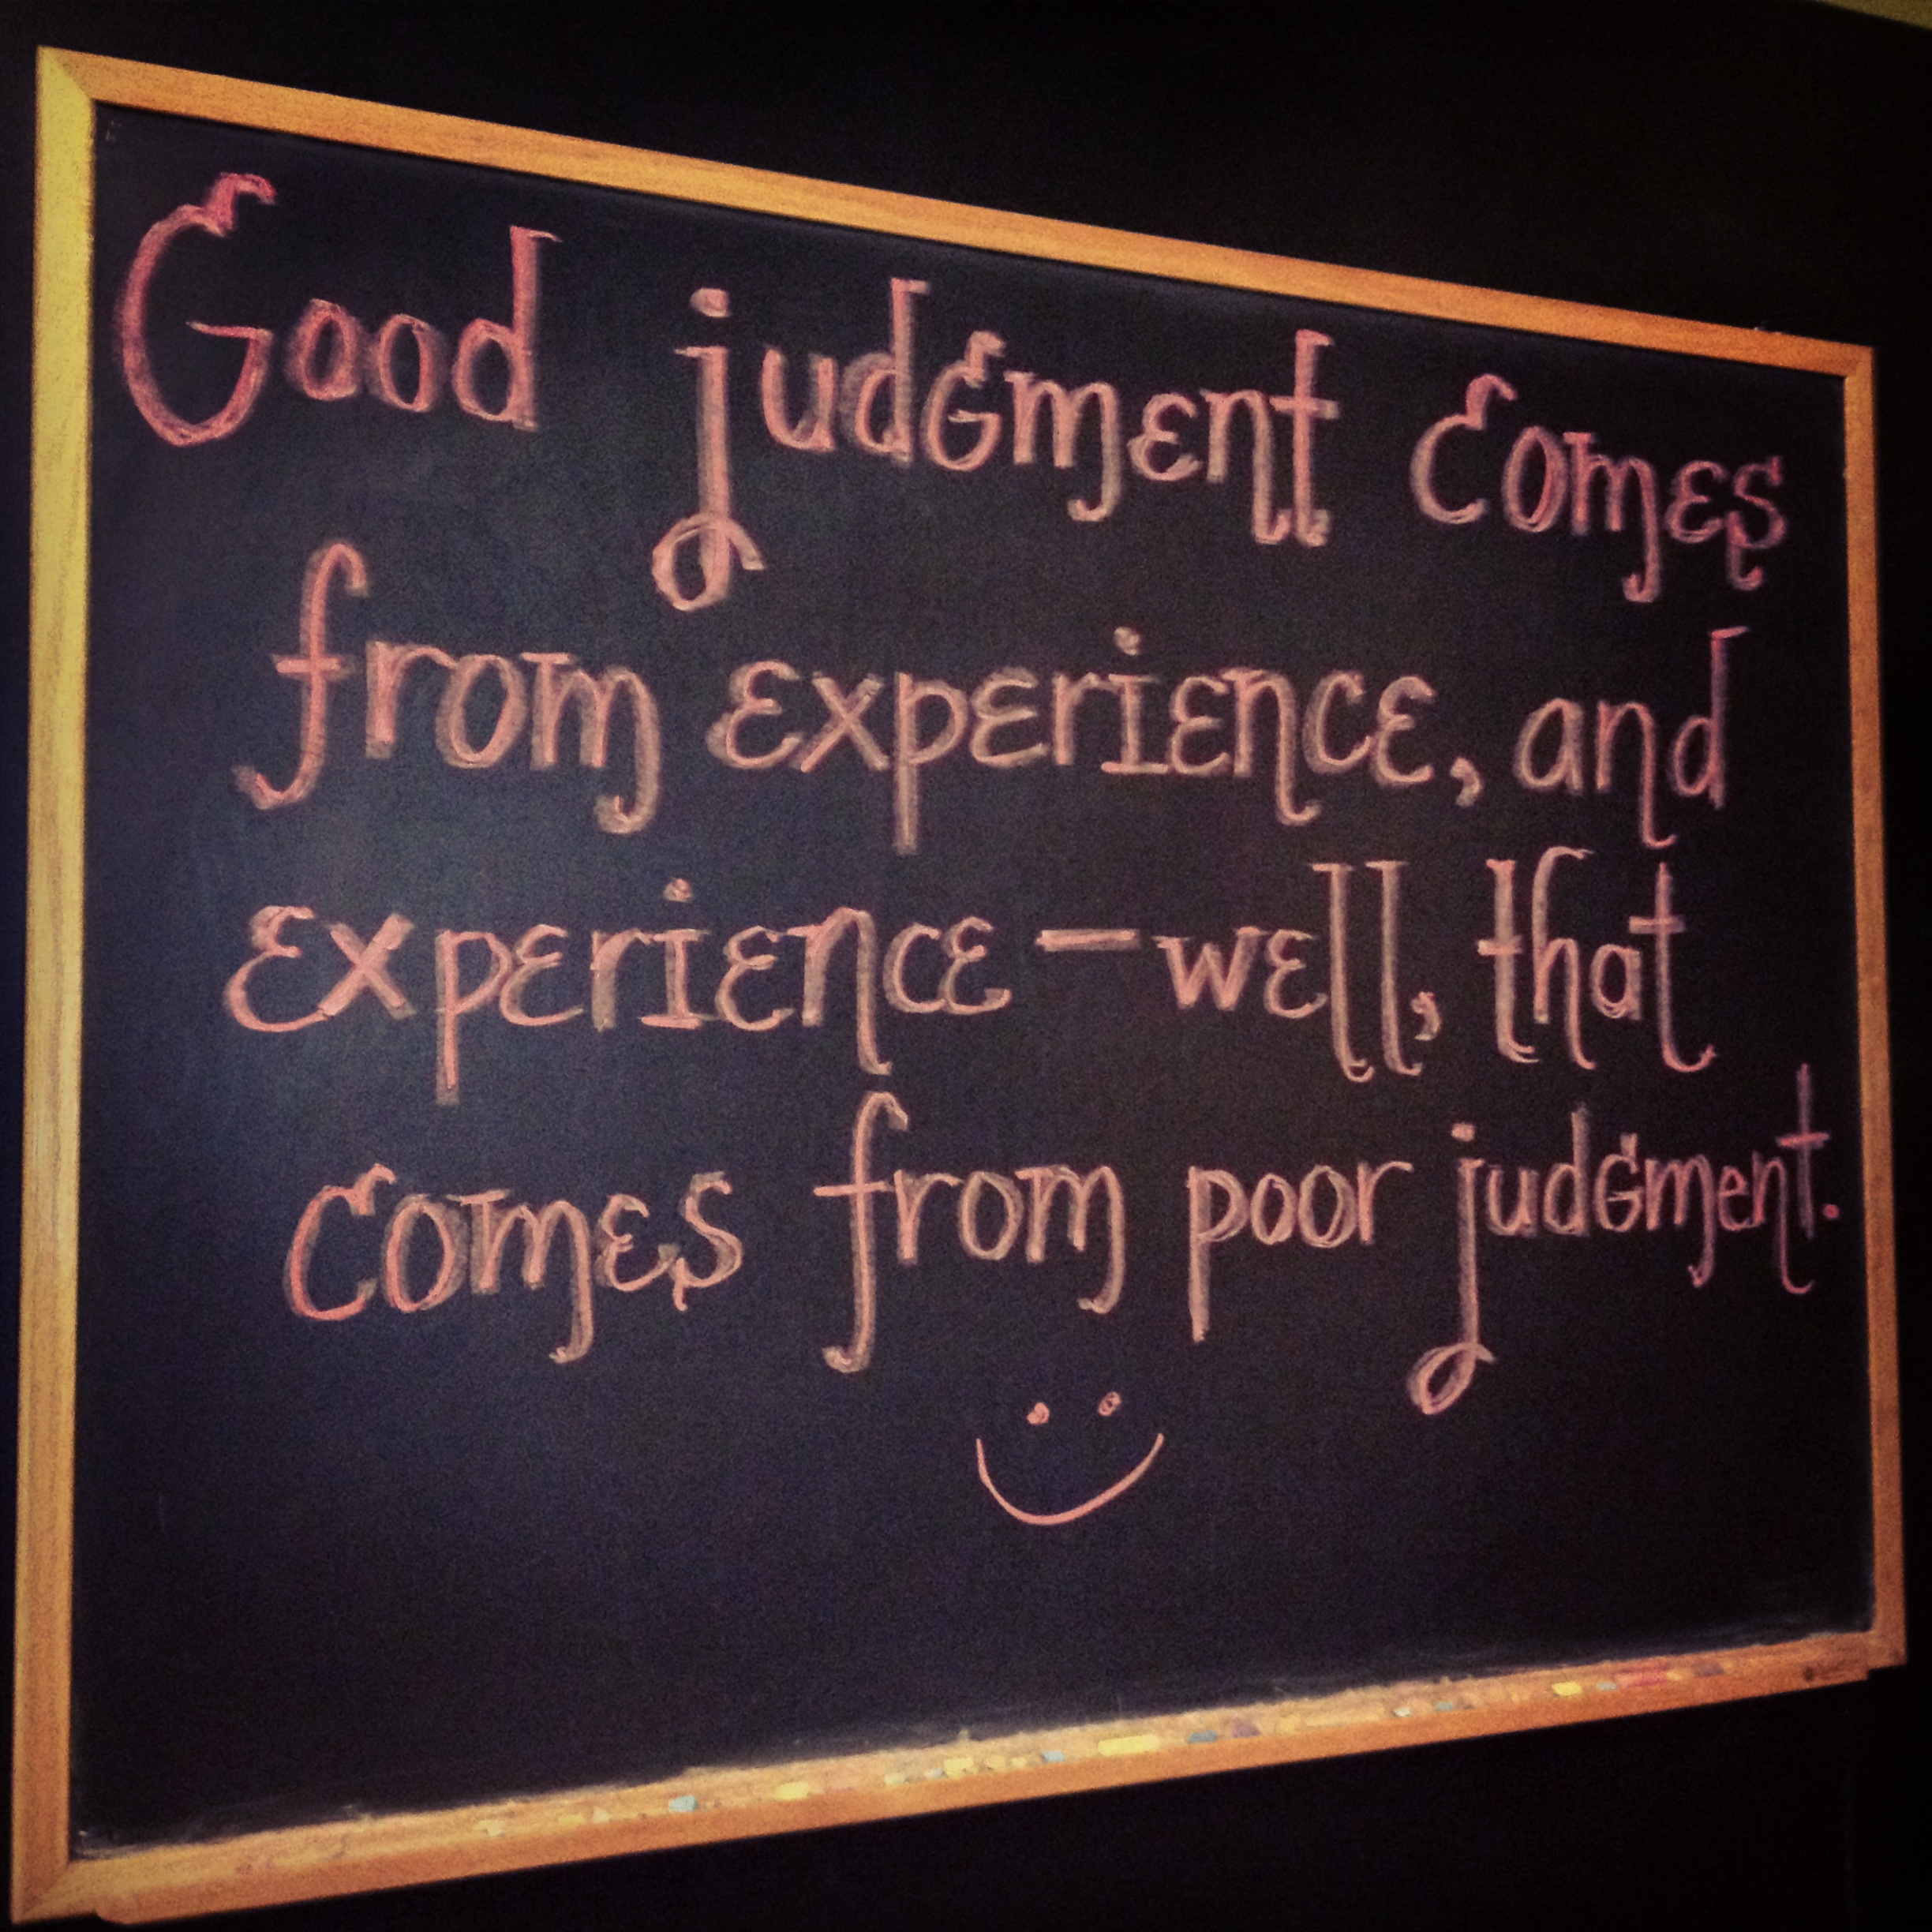 Good judgment comes
from experience, and
experience—well, that
comes from poor judgment.